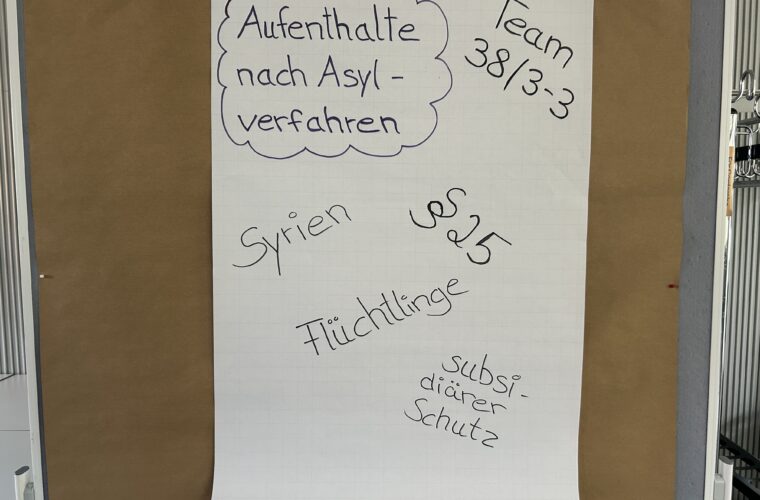 Aufenthalte
nach Asyl-
verfahren
Team
38/3-3
Syrien
§ 25
Flüchtlinge
subsi-
diärer
Schutz